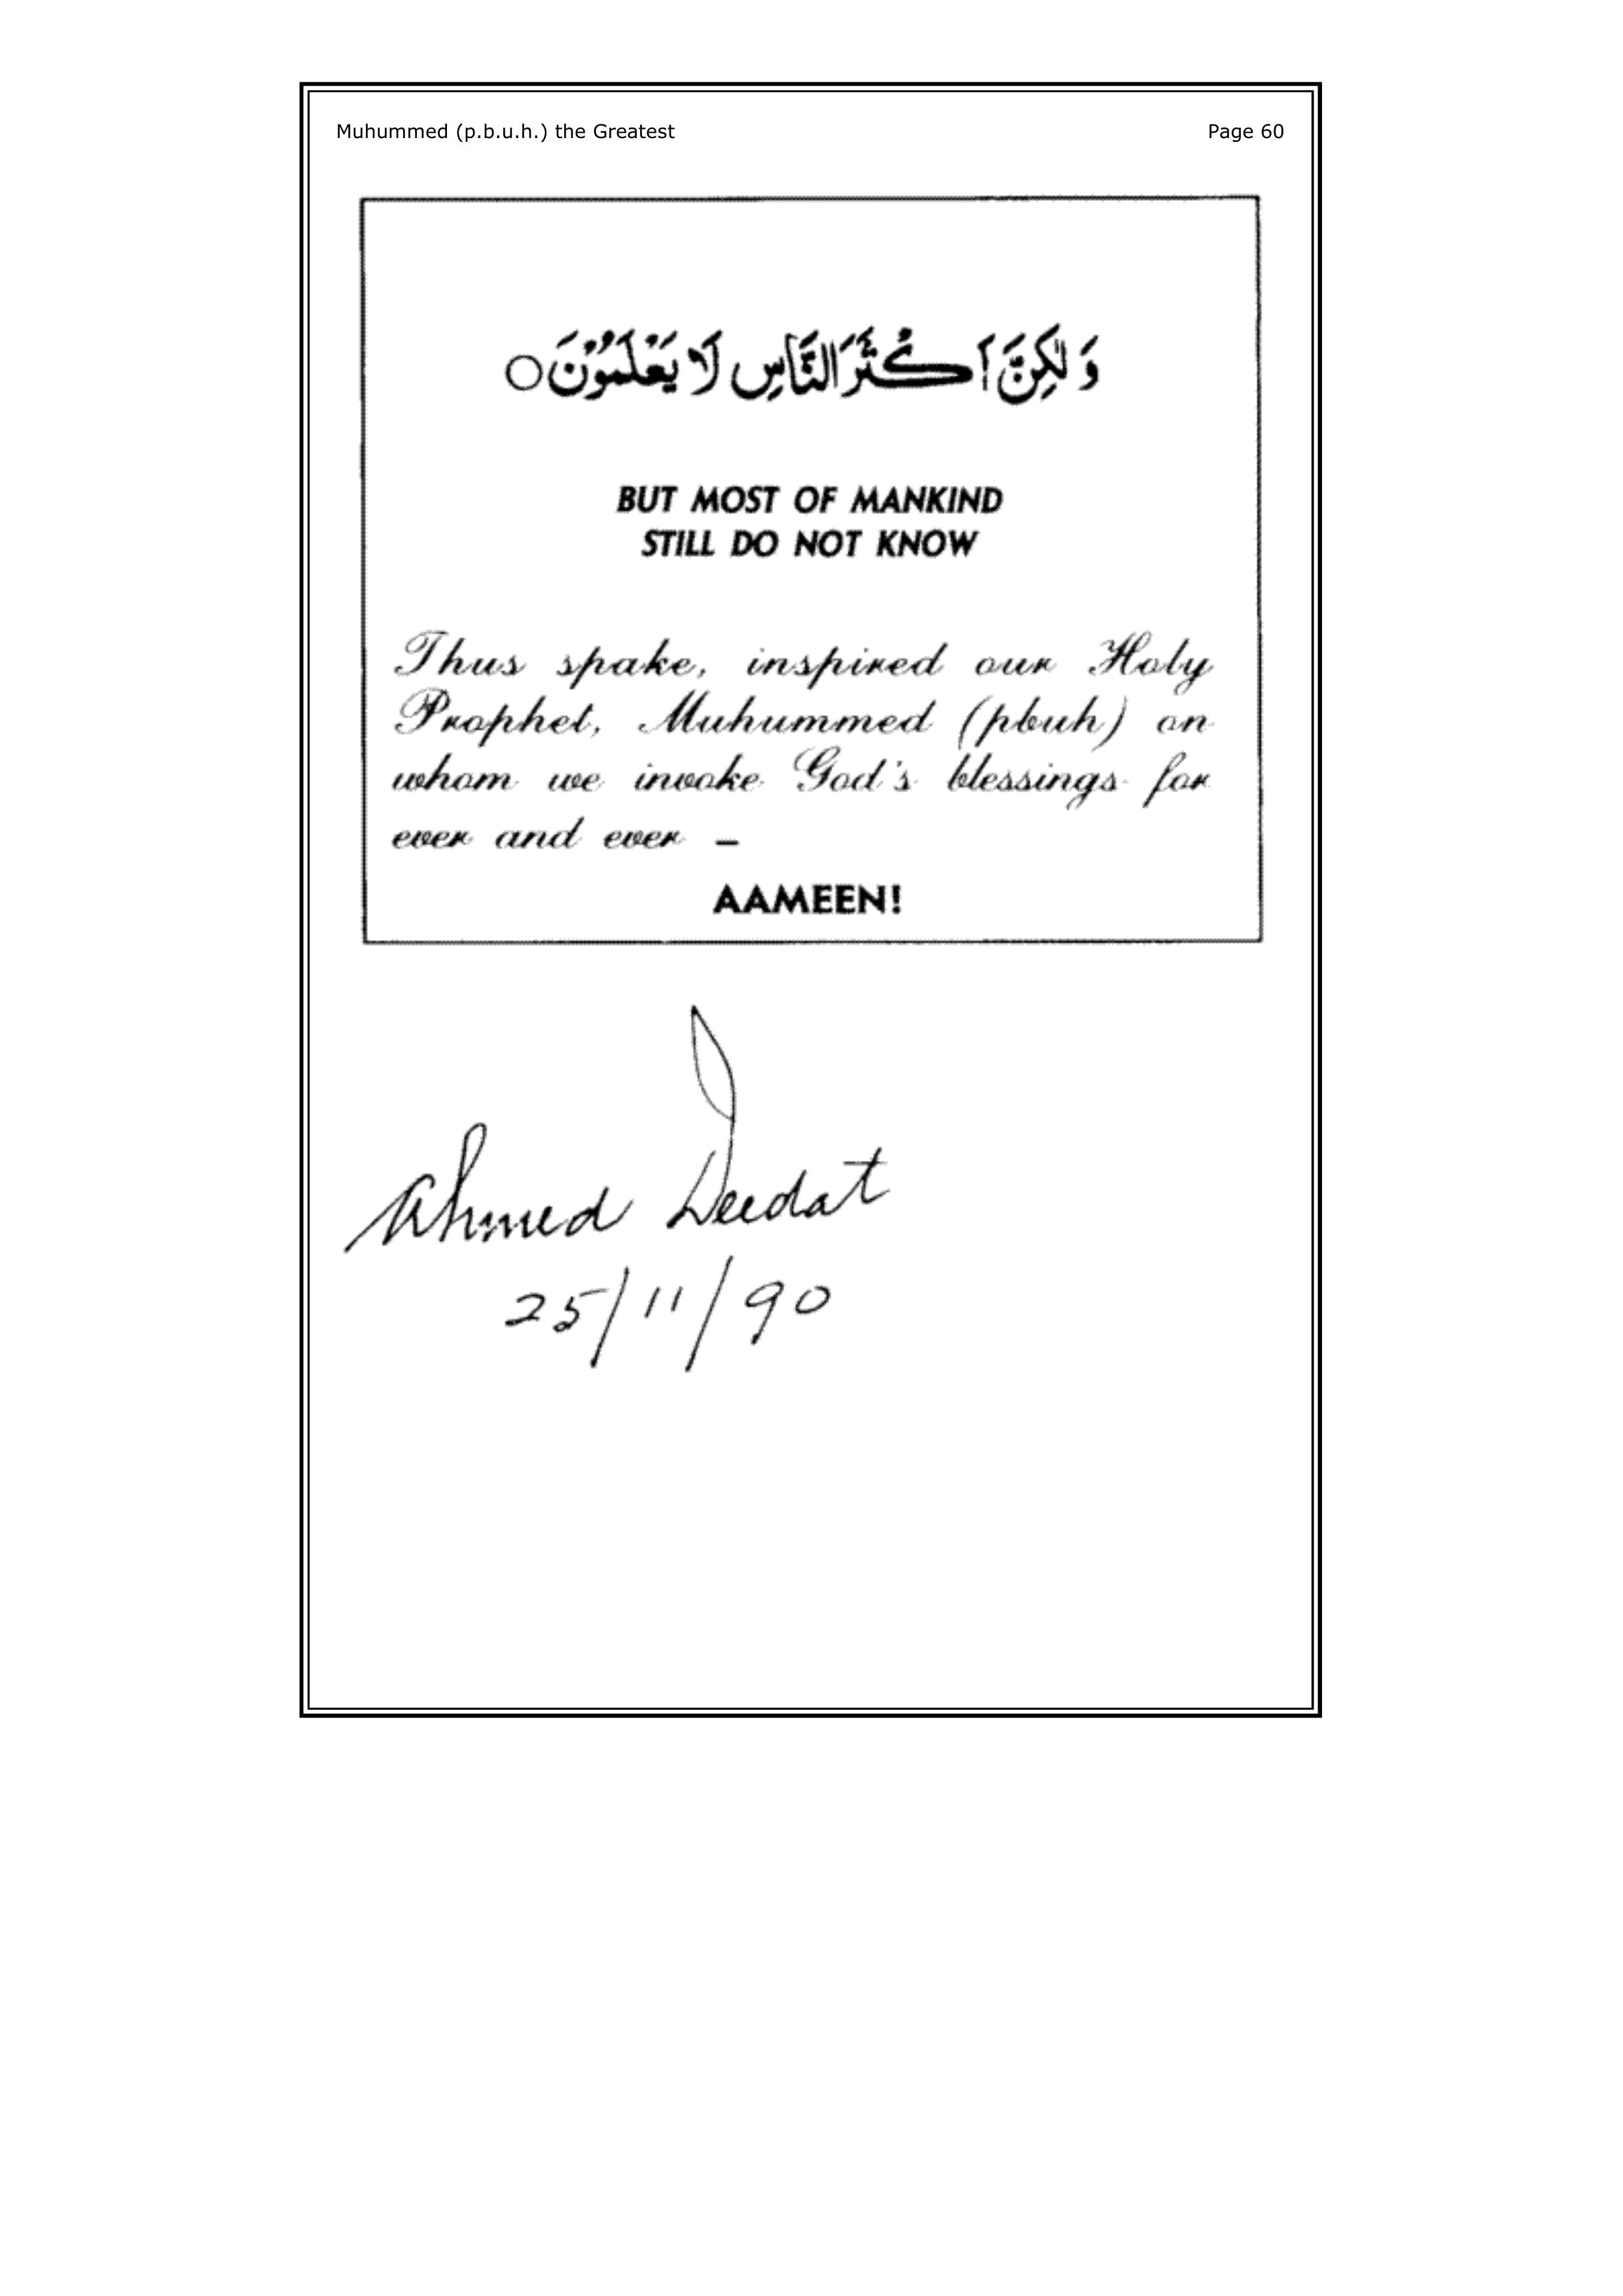 Muhummed (p.b.u.h.) the Greatest Page 60
وَلٰكِنَّ أَكْثَرَ النَّاسِ لَا يَعْلَمُوْنَ ○
BUT MOST OF MANKIND
STILL DO NOT KNOW
Thus spake, inspired our Holy
Prophet, Muhummed (pbuh) on
whom we invoke God's blessings for
ever and ever –
AAMEEN!
Ahmed Deedat
25/11/90